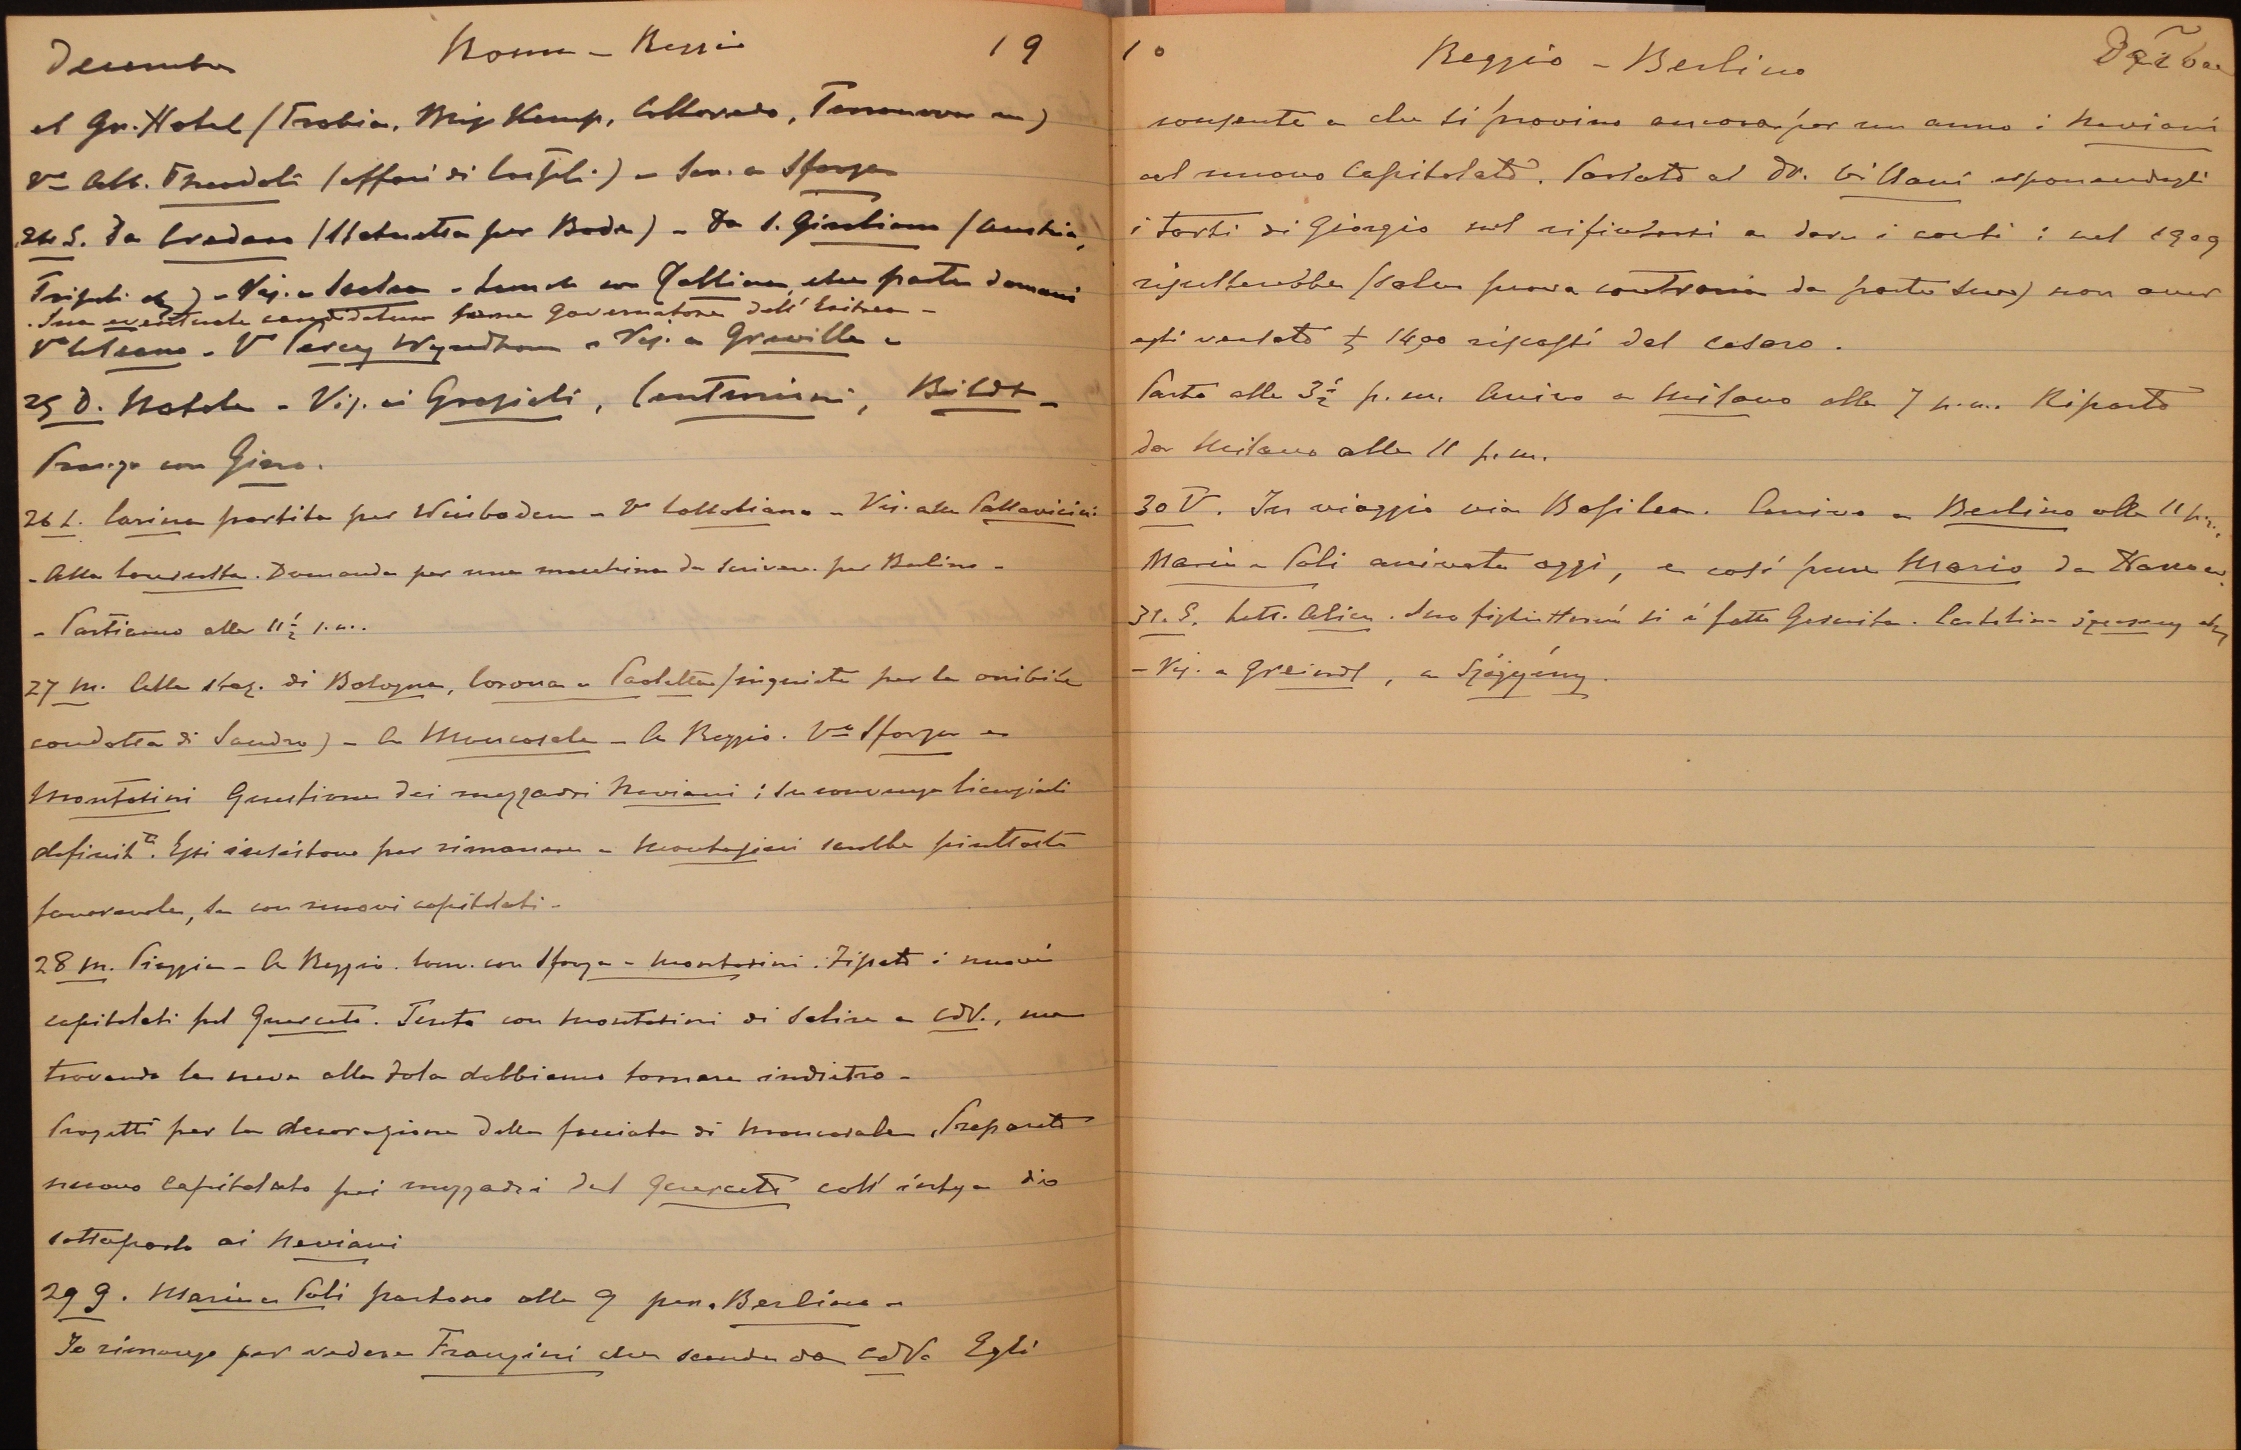 Decembre Roma - Reggio 19
al Gr. Hotel (Trabia, Miss Kemp, Colloredo, Terranova
Va Alb. Theodoli (affari di ) - Ser. a Sforza
24 S. Da Credaro (Statuetta per Bode) - Da S. Giuliano (Austria,
Tripoli etc) - Vis. a - Lunch con Gallina, che parte domani
. Sua eventuale candidatura come Governatore dell'Eritrea -
Va - Va Percy Wyndham - Vis. a Greville -
25 D. Natale - Vis. ai Grazioli, Centurioni, Bildt -
Pranzo con
26 L. Carina partita per Wiesbaden - Va Collobiano - Vis. alle Pallavicini
- Alla Consulta. Domanda per una macchina da scrivere per Berlino -
- Partiamo alle 11 1/2 p.m.
27 M. Alla staz. di Bologna, Corona e Paoletta (inquiete per la orribile
condotta di Sandro) - A Mancasale - A Reggio. Va Sforza e
Montesini Questione dei mezzadri Neviani: se convenga licenziarli
definit.te. Essi insistono per rimanere e Montesini sarebbe piuttosto
favorevole, se con nuovi capitolati -
28 M. Pioggia - A Reggio. Conv. con Sforza e Montesini. Fissati i nuovi
capitolati pel Querceto. Tento con Montesini di salire a CdV., ma
trovando la neve alla Fola dobbiamo tornare indietro -
Progetti per la decorazione della facciata di Mancasale. Preparato
nuovo Capitolato pei mezzadri del Querceto coll'
sottoporlo ai Neviani
29 G. Maria e Poli partono alle 9 per Berlino -
Io rimango per vedere Franzini che scende da CdV. Egli
10 Reggio - Berlino
consente a che si provino ancora per un anno i Neviani
col nuovo Capitolato. Parlato al Dr. Villani esponendogli
i torti di Giorgio sul rifiutarsi a dare i conti: nel 1909
risulterebbe (salvo prova contraria da parte sua) non aver
egli versato £ 1400 riscossi dal casaro.
Parto alle 3 1/2 p.m. Arrivo a Milano alle 7 p.m. Riparto
da Milano alle 11 p.m.
30 V. In viaggio via Basilea. Arrivo a Berlino alle 11 p.m.
Maria e Poli arrivate oggi, e così pure Mario da
31. S. Lett. Alica. Suo figlio si è fatto Gesuita. Cartolina
- Vis. a Greindl, a Szögyény.